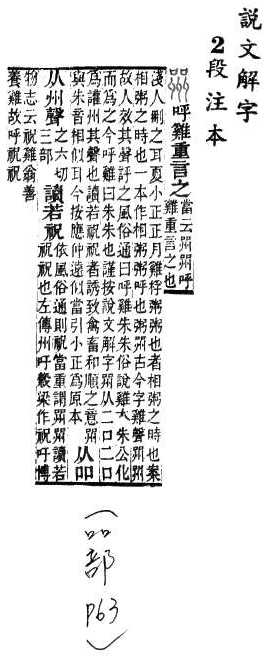 說文解字
2段注本
呼雞重言之當云喌喌呼雞重言之也
淺人刪之耳夏小正正月雞桴粥粥也者相粥之時也案
相粥之時也一本作相粥粥呼也粥喌古今字雞聲喌喌
故人效其聲評之風俗通曰呼雞朱朱俗說雞本朱公化
而為之今呼雞曰朱朱也謹按說文解字喌从二口二口
為讙州其聲也讀若祝祝者誘致禽畜和順之意喌
與朱音相似耳今按應仲遠似當引小正為原本 从吅
从州聲之六切三部讀若祝依風俗通則祝當重謂喌喌讀若
祝祝也左傳州吁榖梁作祝吁博
物志云祝雞翁善
養雞故呼祝祝
(吅部 P63)